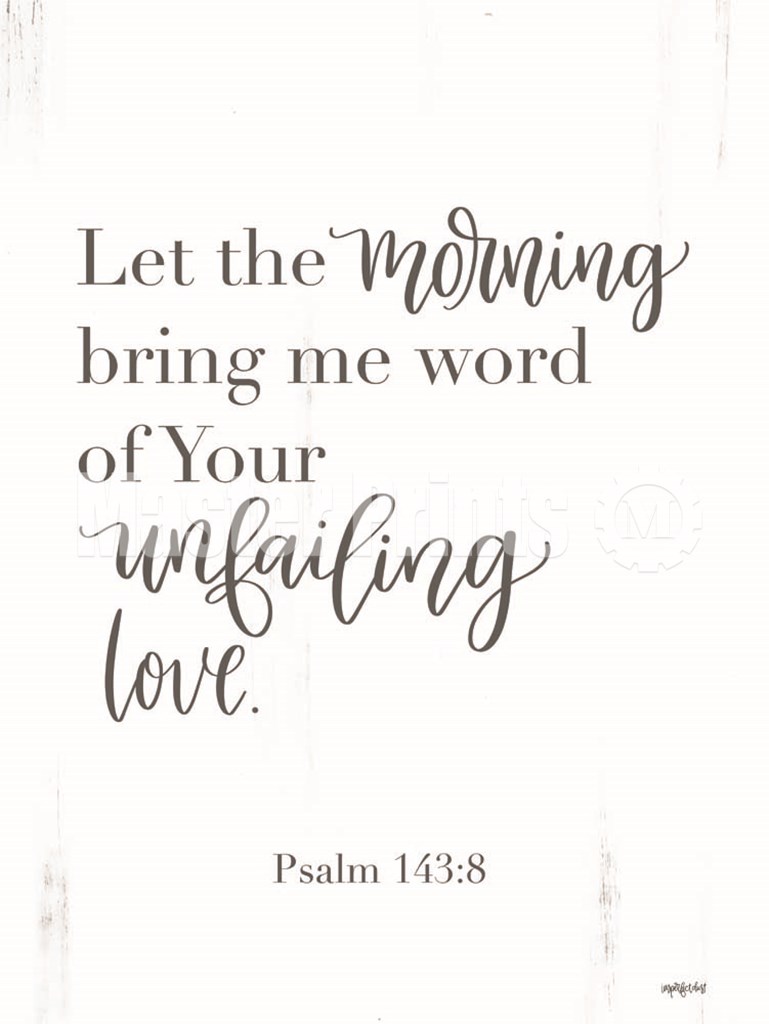 Let the morning
bring me word
of Your
unfailing
love.
Master Prints
M
Psalm 143:8
imperfect dust